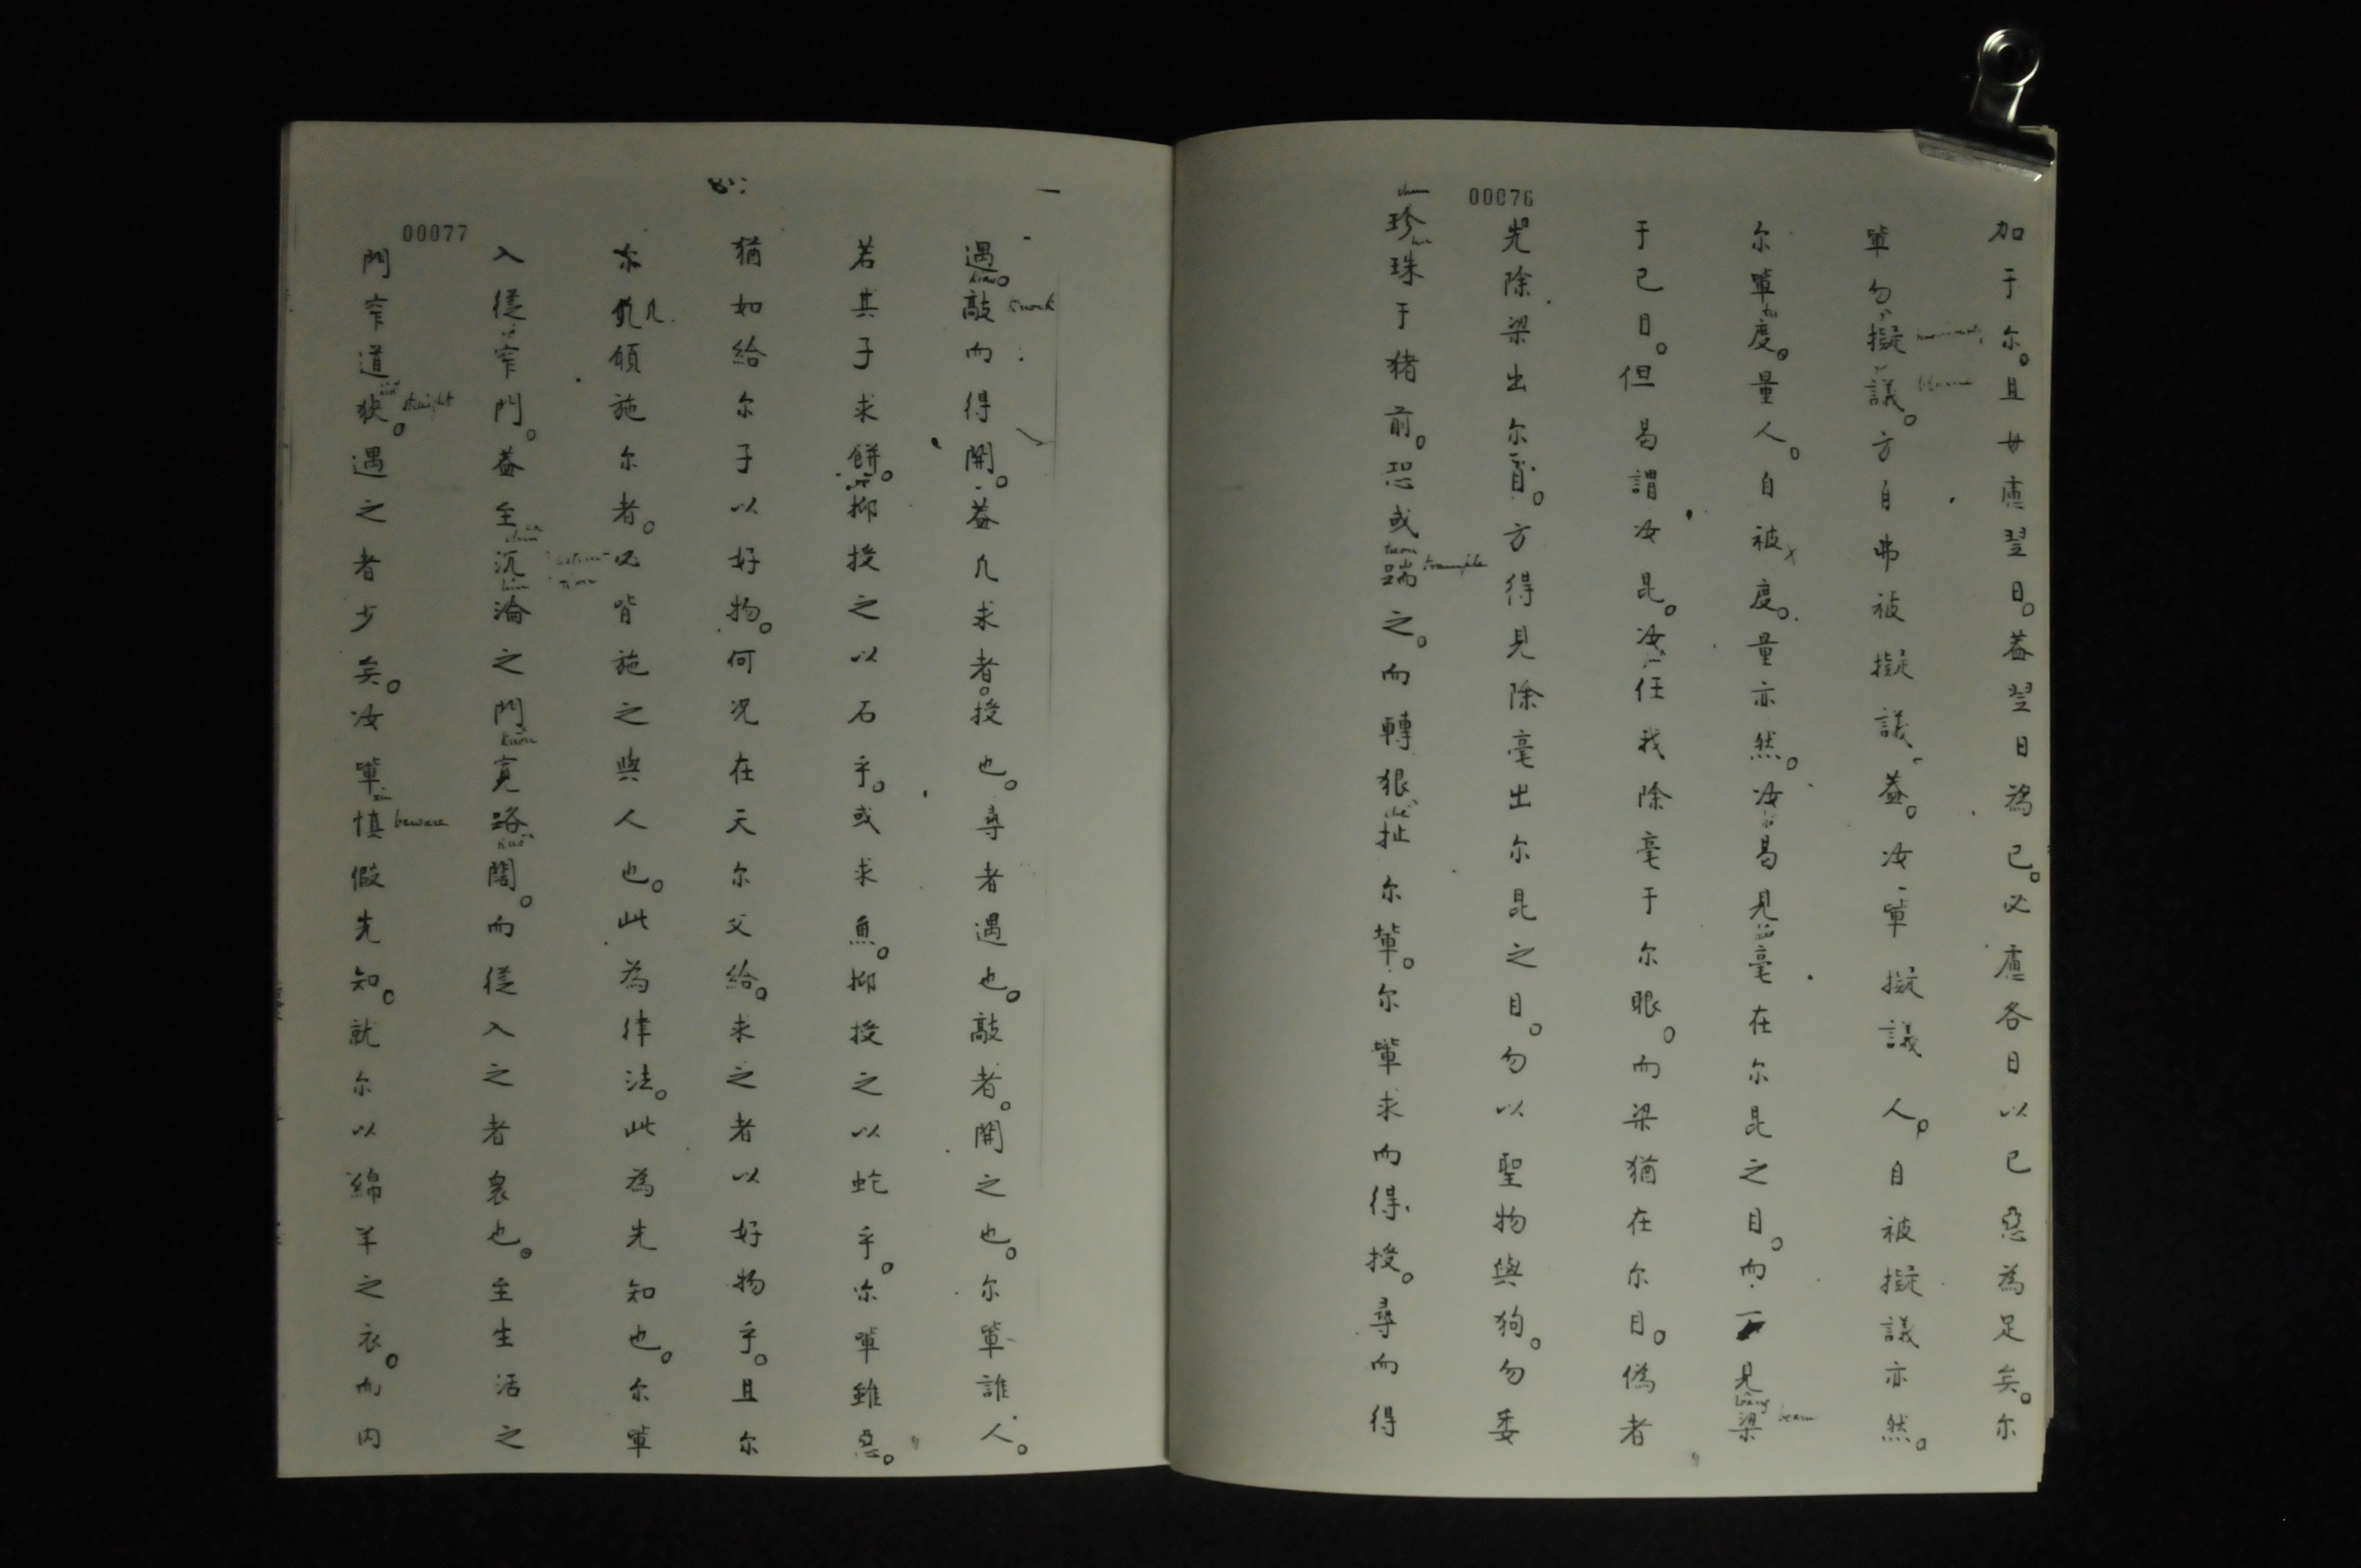 00076
加于尔。且毋慮翌日。蓋翌日為已。必慮各日以已惡為足矣。尔
軰勿擬議。方自弗被擬議。蓋。汝軰擬議人。自被擬議亦然。
尔軰度。量人。自被度。量亦然。汝曷見毫在尔昆之目。而不見梁
于已目。但曷謂汝昆。汝任我除毫于尔眼。而梁猶在尔目。偽者
先除梁出尔目。方得見除毫出尔昆之目。勿以聖物與狗。勿委
珍珠于猪前。恐或踹之。而轉狠扯尔軰。尔軰求而得授。尋而得
blame
beam
trample
00077
遇。敲而得開。蓋凡求者。授也。尋者遇也。敲者。開之也。尔軰誰人。
若其子求餅。抑授之以石乎。或求魚。抑授之以蛇乎。尔軰雖惡。
猶如給尔子以好物。何况在天尔父給。求之者以好物乎。且尔
尔凢凡願施尔者。必皆施之與人也。此為律法。此為先知也。尔軰
入從窄門。蓋至沉淪之門寬路闊。而從入之者衆也。至生活之
門窄道狹。遇之者少矣。汝軰慎假先知。就尔以綿羊之衣。而内
knock
straight
beware